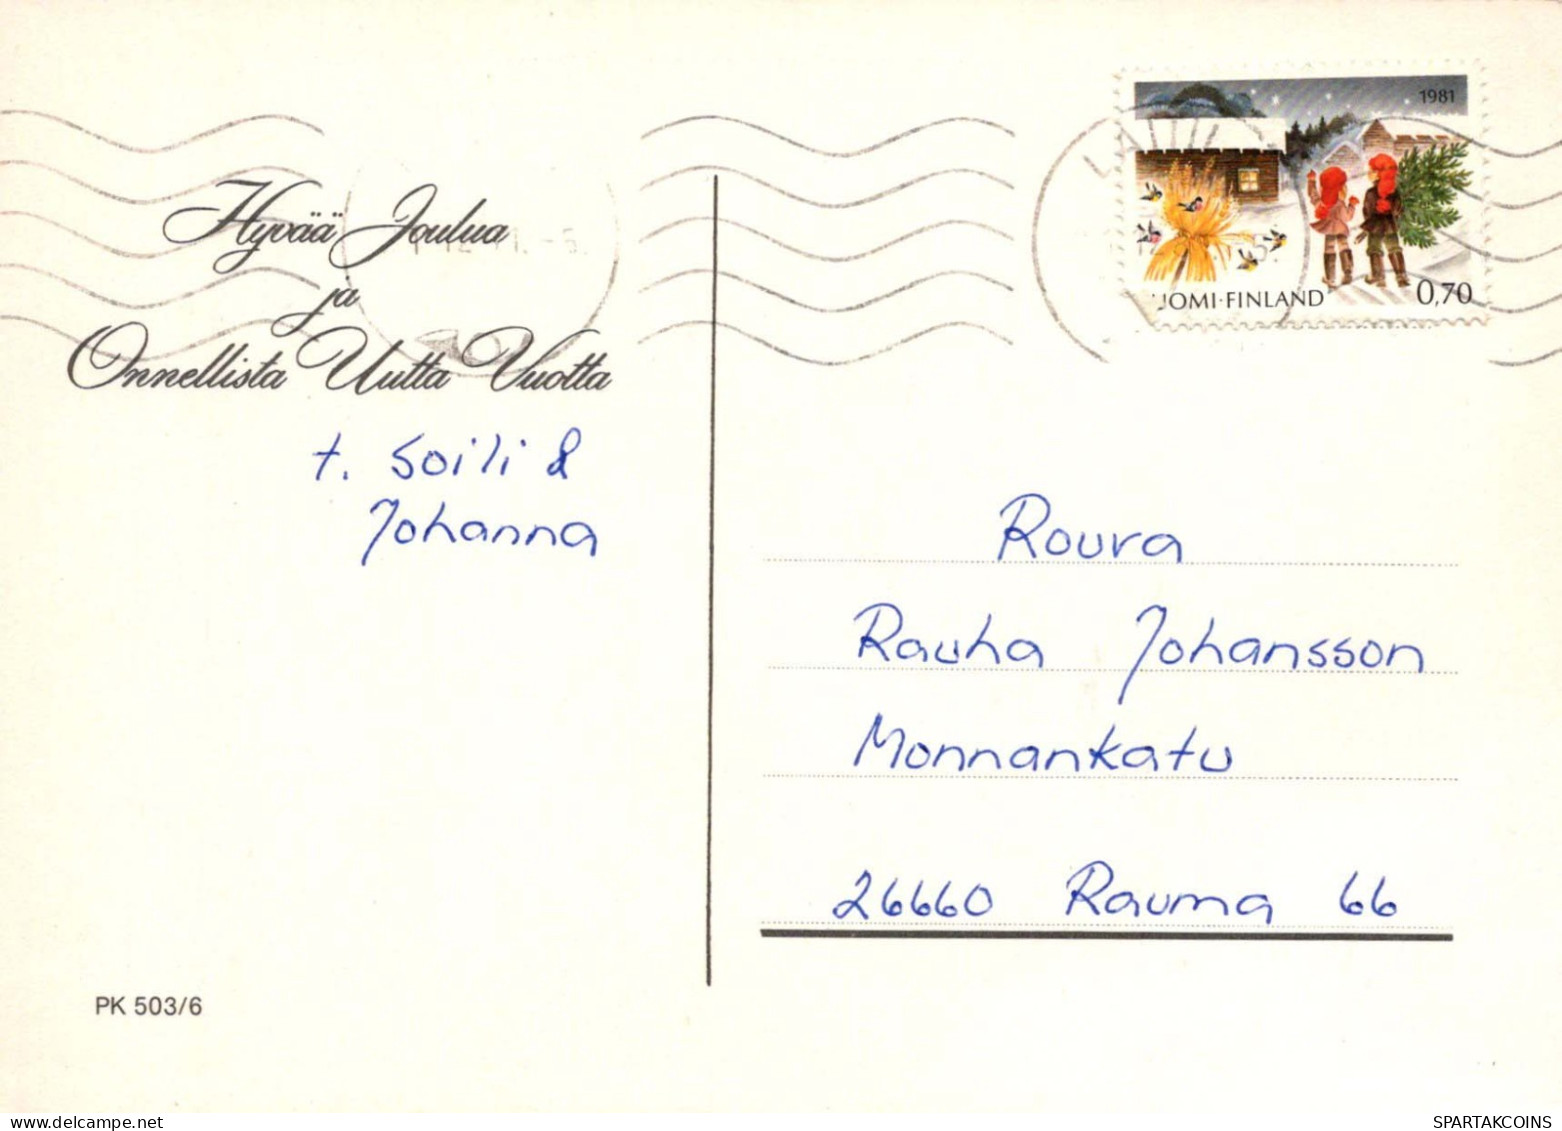 Hyvää Joulua
ja
Onnellista Uutta Vuotta
t. Soili &
Johanna
PK 503/6
1981
UOMI-FINLAND
0,70
Rouva
Rauha Johansson
Monnankatu
26660 Rauma 66
SPARTAKCOINS